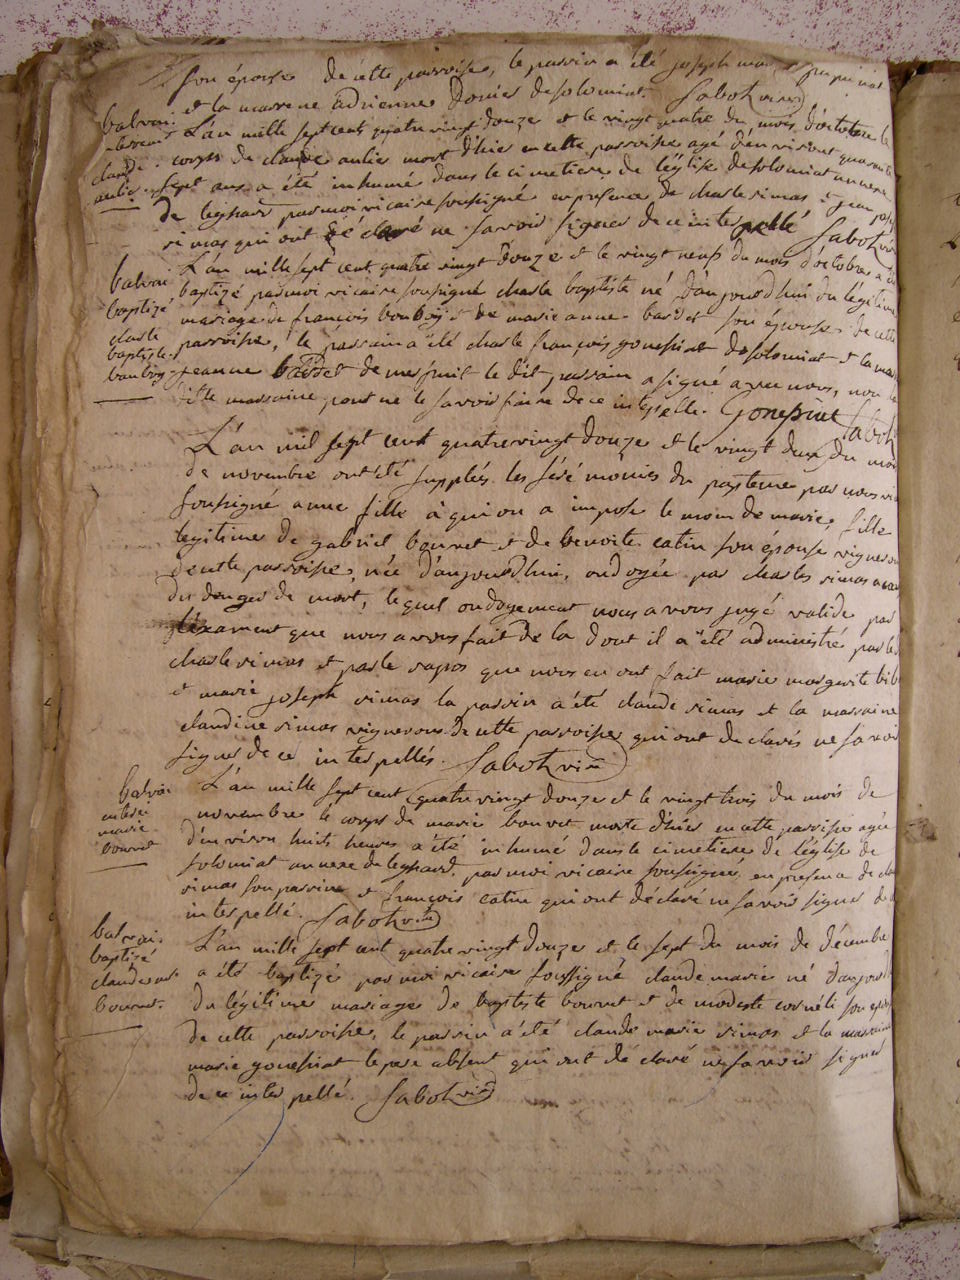 son épouse de cette parroisse, le parrin a été joseph
et la marrene adrienne Donier de solomiat Sabot vic
balvoi
enterré
claude
aulier
L'an mille sept cent quatre vingt douze et le vingt quatre du mois d'octobre le
corps de claude aulier mort d'hier en cette parroisse agé d'environt quarante
sept ans a été inhumé dans le cimetiere de l'église de solomiat annexe
de leyssard par moi vicaire soussigné en presence de charle simas et jean
simas qui ont dé claré ne savoir signer de ce inter pellé Sabot vic
balvoi
baptizé
charle
baptiste
L'an mille sept cent quatre vingt douze et le vingt neuf du mois d'octobre a été
baptizé par moi vicaire soussigné charle baptiste né d'aujourd'hui du légitime
mariage de françois et de marie anne son épouse de cette
parroisse, le parrain a été charle françois gonepiat de solomiat et la
jeanne de le dit parrain a signé avec nous, non la
ditte marraine pour ne le savoir faire de ce inter pellé. Gonepiat Sabot
L'an mil sept cent quatre vingt douze et le vingt deux du mois
de novembre ont été supplées les sérémonies du baptême par nous
soussigné a une fille à qui on a imposé le nom de marie, fille
legitime de gabriel bouvet et de benoite catin son épouse vigneron
de cette parroisse, née d'aujourd'hui, ondoyée par charles simas a cause
du danger de mort, lequel ondoyement nous avous jugé valide par
l'éxament que nous avons fait de la dont il a été administré par led
charle simas et par le rapor que nous en ont fait marie margerite
et marie joseph simas la parrin a été claude simas et la marraine
claudine simas vignerons de cette parroisse qui ont de clarés ne savoir
signer de ce inter pellés. Sabot vic
balvoi
enterré
marie
bouvet
L'an mille sept cent quatre vingt douze et le vingt trois du mois de
novembre le corps de marie bouvet morte d'hier en cette parroisse agée
d'environ huit heures a été inhumé dans le cimetiere de l'église de
solomiat annexe de leyssard par moi vicaire soussigné, en presence de
simas son parrin et françois catin qui ont déclaré ne savoir signer de
inter pellé. Sabot vic
balvoi
baptizé
claude marie
bouvet
L'an mille sept cent quatre vingt douze et le sept du mois de décembre
a été baptizé par moi vicaire soussigné claude marie né d'aujourd
du légitime mariage de baptiste bouvet et de modeste cornéti son
de cette parroisse, le parrin a été claude marie simas et la marraine
marie gonepiat le pere absent qui ont dé claré ne savoir signer
de ce inter pellé. Sabot vic